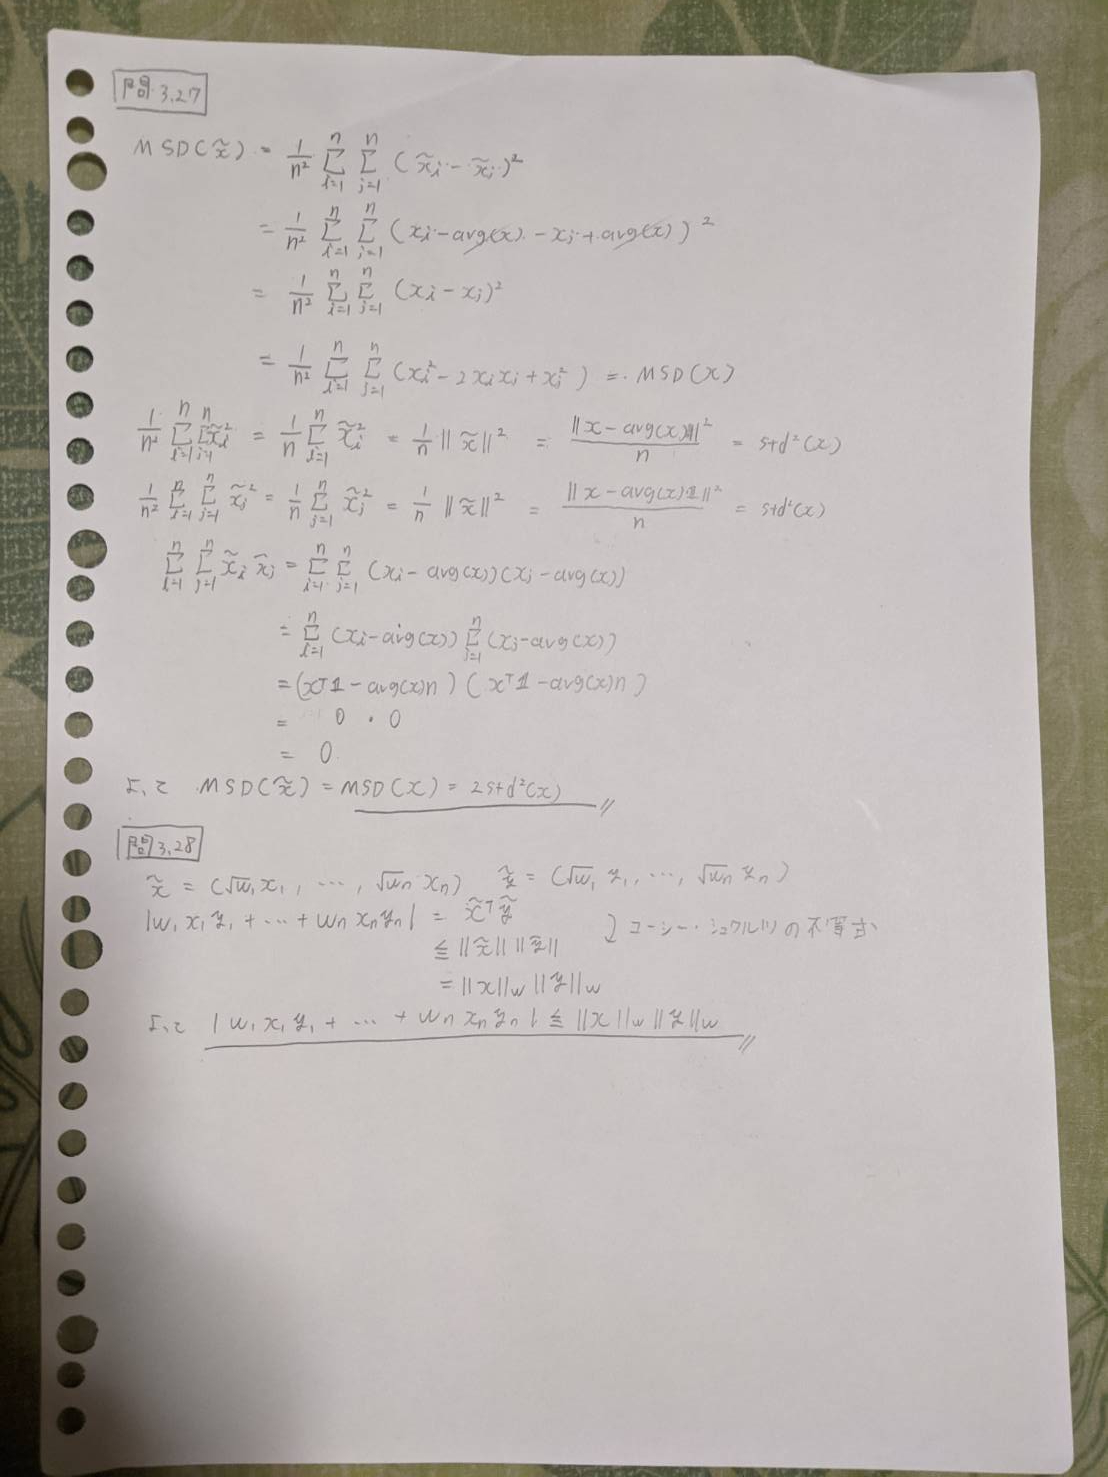 問 3.27
MSD(x̃) = 1/n² Σ_{i=1}^n Σ_{j=1}^n (x̃i - x̃j)²
= 1/n² Σ_{i=1}^n Σ_{j=1}^n (xi - avg(x) - xj + avg(x))²
= 1/n² Σ_{i=1}^n Σ_{j=1}^n (xi - xj)²
= 1/n² Σ_{i=1}^n Σ_{j=1}^n (xi² - 2xixj + xj²) = MSD(x)
1/n² Σ_{i=1}^n Σ_{j=1}^n x̃i² = 1/n Σ_{i=1}^n x̃i² = 1/n ||x̃||² = ||x - avg(x)1||²/n = std²(x)
1/n² Σ_{i=1}^n Σ_{j=1}^n x̃j² = 1/n Σ_{j=1}^n x̃j² = 1/n ||x̃||² = ||x - avg(x)1||²/n = std²(x)
Σ_{i=1}^n Σ_{j=1}^n x̃i x̃j = Σ_{i=1}^n Σ_{j=1}^n (xi - avg(x))(xj - avg(x))
= Σ_{i=1}^n (xi - avg(x)) Σ_{j=1}^n (xj - avg(x))
= (xᵀ1 - avg(x)n)(xᵀ1 - avg(x)n)
= 0 · 0
= 0
よって MSD(x̃) = MSD(x) = 2std²(x)
問 3.28
x̃ = (√w1 x1, ..., √wn xn) ỹ = (√w1 y1, ..., √wn yn)
|w1 x1 y1 + ... + wn xn yn| = x̃ᵀỹ
≦ ||x̃|| ||ỹ|| コーシー・シュワルツの不等式
= ||x||w ||y||w
よって |w1 x1 y1 + ... + wn xn yn| ≦ ||x||w ||y||w